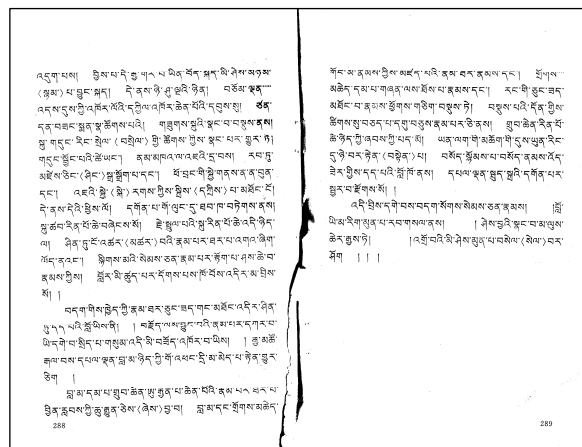 འདུག་པས། བྱིས་པ་དེ་རྒྱ་གར་པ་ཡིན་བོད་སྐད་མི་ཤེས་མཉམ་
(སྙམ་) པ་བྱུང་སྐད། དེ་ནས་ཉི་ཤུ་ལྔའི་ཉིན། བཅོམ་ལྡན་
འདས་དུས་ཀྱི་འཁོར་ལོའི་དཀྱིལ་འཁོར་ཆེན་པོའི་དབུས་སུ། ཙན་
དན་བཟང་སྨན་སྣ་ཚོགས་པའི། གཟུགས་སྐུའི་སྣང་བ་བསྡུས་ནས།
སྐུ་གདུང་རིང་བསྲེལ་ (བསྲེལ་) གྱི་ཚོགས་ཀྱིས་སྣང་པར་གྱུར་ཏེ།
གདུང་སྦྱོང་པའི་ཚེ་ཡང་། ནམ་མཁའ་ལ་འཇའི་དྲ་བས། རབ་ཏུ་
མཛེས་ཅིང་ (ཤིང་) སྒྲ་སྒྲོག་པ་དང་། ཕོ་བྲང་གི་ཕྱི་གནས་ན་ན་བུན་
དང་། འཇའི་སྐྱེ་ (སྐེ་) རགས་ཀྱིས་སྤྲིས་ (དཀྲིས་) པ་མཐོང་ངོ།
དེ་ནས་དེའི་ཕྱིས་ལོ། དགོན་པ་གོ་ལུང་དུ་ཐབ་ཁ་བཏེགས་ནས།
སྐུ་ཚབ་རིན་པོ་ཆེ་བཞེངས་སོ། རྗེ་སྤྲུལ་པའི་སྐུ་རིན་པོ་ཆེ་འདི་ཉིད་
ལ། ཤིན་ཏུ་ངོ་འཚར་ (མཚར་) བའི་རྣམ་པར་ཐར་པ་འགའ་ཞིག་
ཡོད་ནའང་། སྙིགས་མའི་སེམས་ཅན་རྣམ་པར་རྟོག་པ་ཤས་ཆེ་བ་
རྣམས་ཀྱིས། བློར་མི་ཚུད་པར་དོགས་པས་ཁོ་བོས་འདིར་མ་བྲིས་
སོ། །
བདག་གིས་ཁྱེད་ཀྱི་རྣམ་ཐར་ཅུང་ཟད་གང་མཐོང་འདིར་ཤིན་
ཏུ་དད་པའི་བློ་ཡིས་ནི། །བརྗོད་ལས་བྱུང་བའི་རྣམ་པར་དཀར་བ་
ཡི་དགེ་བ་སྲིད་པ་གསུམ་འདི་མི་བཟོད་འཁོར་བ་ཡིས། །རྒྱ་མཚོ་
རྒལ་བས་དཔལ་ལྡན་བླ་མ་ཉིད་ཀྱི་གོ་འཕང་དྲི་མ་མེད་པ་རྟེན་གྱུར་
ཅིག །
བླ་མ་དམ་པ་གྲུབ་ཆེན་ཨུ་རྒྱན་པ་ཆེན་པོའི་རྣམ་པར་ཐར་པ་
བྱིན་རླབས་ཀྱི་ཆུ་རྒྱུན་ཅེས་ (ཞེས་) བྱ་བ། བླ་མ་དང་གྲོགས་མཆེད་
288
གོང་མ་རྣམས་ཀྱིས་མཛད་པའི་ནམ་ཐར་ནམས་དང་། གྲོགས་
མཆེད་དམ་པ་གཞན་ལས་ཐོས་པ་རྣམས་དང་། རང་གི་ཅུང་ཟད་
མཐོང་བ་ནམས་ཕྱོགས་གཅིག་བསྡུས་ཏེ། བསྡུས་པའི་དོན་གྱིས་
ཚིགས་སུ་བཅད་པ་དགུ་བཅུས་རྣམ་པར་ཅི་ནས། གྲུབ་ཆེན་རིན་པོ་
ཆེ་ཉིད་ཀྱི་ཞབས་ཀྱི་པདྨ། ཡན་ལག་གི་མཆོག་གི་དུས་ཡུན་རིང་
དུ་ཉེ་བར་རྟེན་ (བསྟེན་) པ། བསོད་སྙོམས་པ་བསོད་ནམས་འོད་
ཟེར་གྱིས་དད་པའི་བློ་ཁོ་ནས། དཔལ་ལྡན་སྦུད་སྐྲའི་དགོན་པར་
སྦྱར་བ་རྫོགས་སོ། །
འདི་བྲིས་དགེ་བས་བདག་སོགས་སེམས་ཅན་རྣམས། །བློ་
ཡི་མ་རིག་མུན་པ་རབ་གསལ་ནས། །ཤེས་བྱའི་སྣང་བ་མ་ལུས་
ཆེར་རྒྱས་ཏེ། །འགྲོ་བའི་མི་ཤེས་མུན་པ་བསེལ་ (སེལ་) བར་
ཤོག ། ། །
289